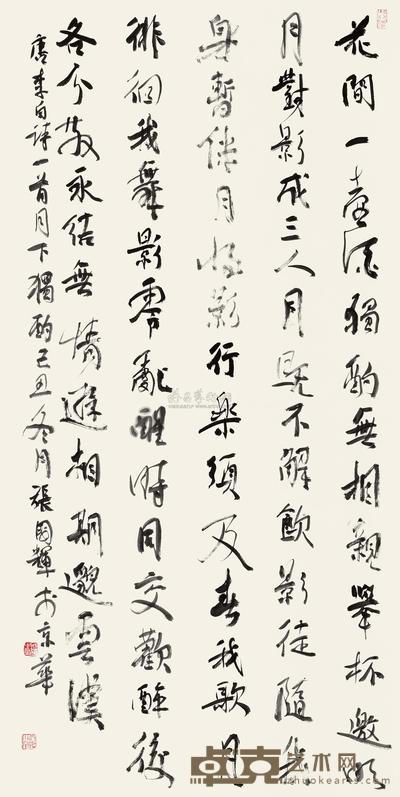 花間一壺酒獨酌無相親舉杯邀明
月對影成三人月既不解飲影徒隨我
身暫伴月將影行樂須及春我歌月
徘徊我舞影零亂醒時同交歡醉後
各分散永結無情遊相期邈雲漢
唐李白詩一首月下獨酌己丑冬月張國輝於京華
卓克艺术网
zhuokearts.com